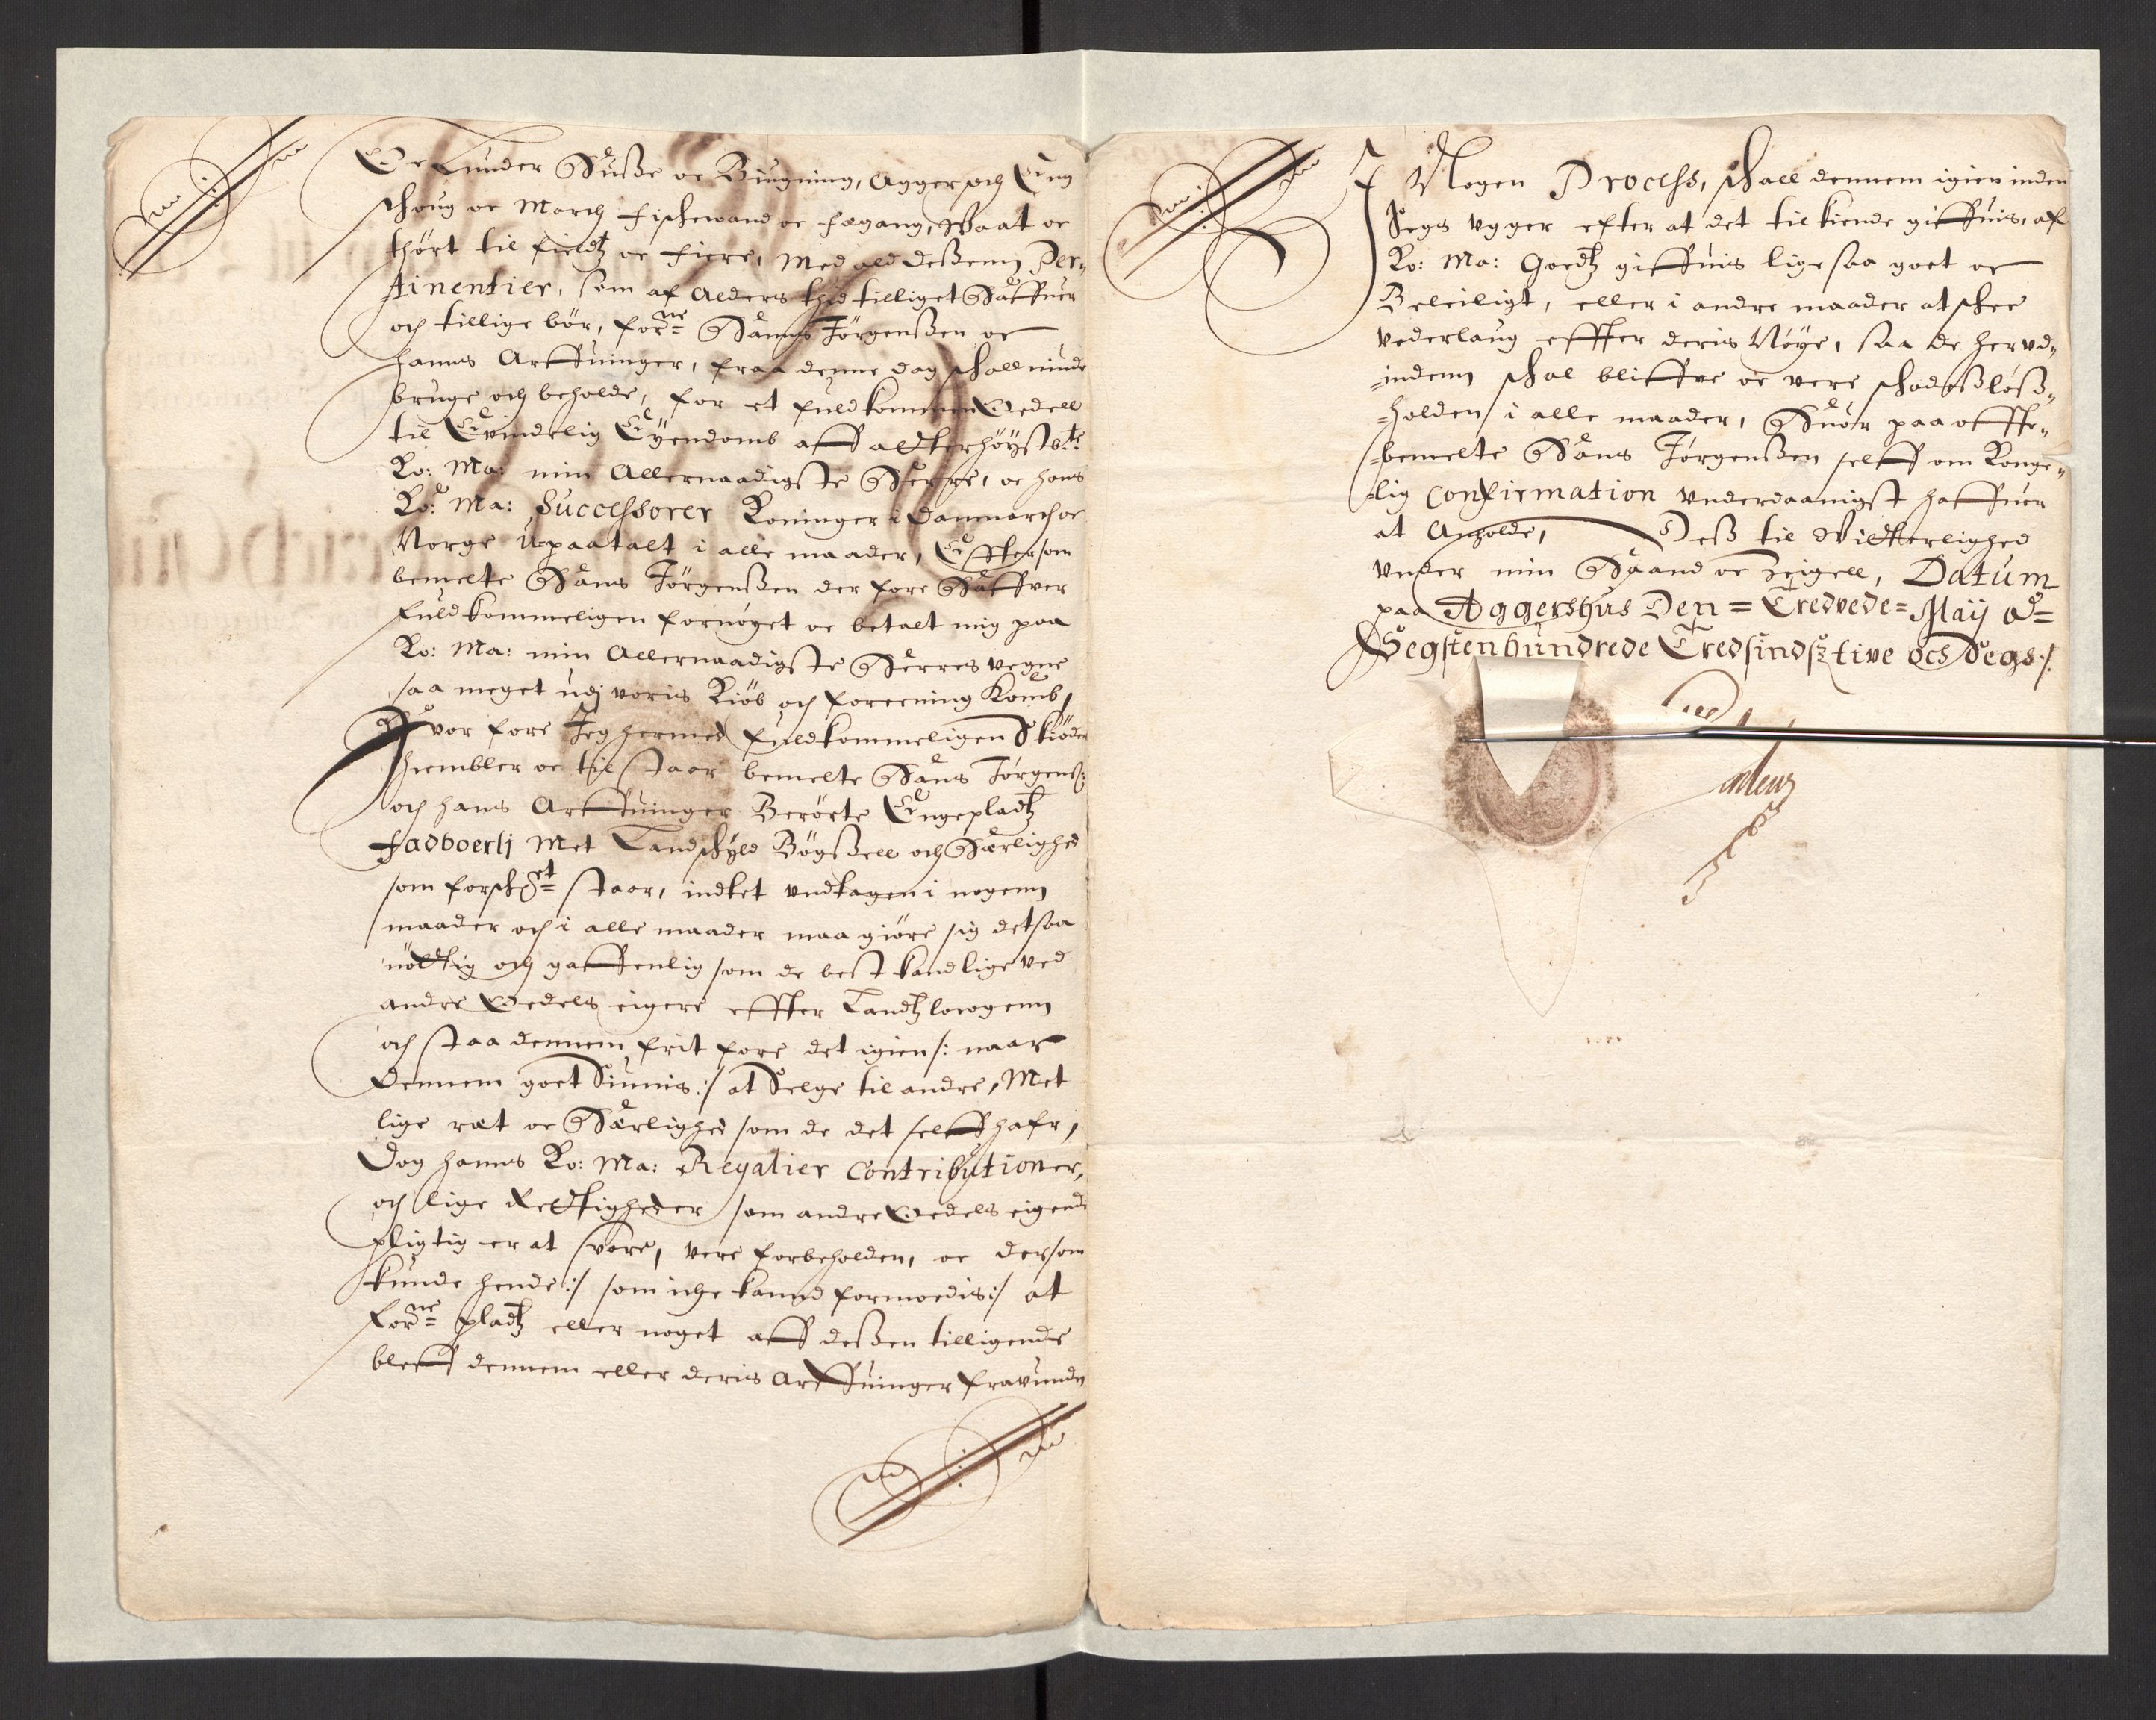 Oc Lunder Huusse oc Biugning, Agger och Eng
schoug oc March fischewand oc fægang, Waat oc
thørt til fieldtz oc fiere, Med ald dessenn Per,
tinentier, som af Alders thid tilliget Haffuer
och tillige bör, forne Hanns Jörgenssen oc
hanns Arffuinger, fraa denne dag schall niude
bruge och beholde, for et fuldkommen Oedell
til Evindelig Eyendomb aff allerhöyste
Ko: Ma: min Allernaadigste Herre, oc hans
Ko: Ma: Successorer Koninger i Danmarch oc
Norge Upaatalt i alle maader, Effter som
bemelte Hans Jörgenssen der fore Haffver
fuldkommeligen fornøyet oc betalt mig paa
Ko: Ma: min Allernaadigste Herres vegne
saa meget udj voris Kiöb och foreening Komb,
Hvor fore Jeg hermed fuldkommeligen Skiöder
hiembler oc til staar bemelte Hans Jörgens:
och hans Arffuinger Berörte Engepladtz
Fadboerlj Met Landschyld Bögssell och Herlighed
som forschet staar, indtet undtagen i nogenn
maader och i alle maader maa giöre sig det saa
nöttig och gaffenlig som de best kand lige ved
andre Oedels eigere effter Landtzlowgenn
och staa dennem frit fore det igien /: naar
dennem goet Siunnis :/ at Selge til andre, Met
lige ræt oc Herlighed som de det self hafr,
Dog hanns Ko: Ma: Regalier Contributioner,
och lige Rettigheder som andre Oedels eigend
pligtig er at svare, vere forbeholden, oc dersom
kunde hende :/ som iche kannd formoedis :/ at
forne pladtz eller noget aff dessen tilligende
bleff dennem eller deris Arffuinger fravunden
I Nogen Process, schall dennem igien inden
Segs ugger efter at det til kiende giffuis, af
Ko: Ma: Goedtz giffuis lige saa goet oc
Beleiligt, eller i andre maader at schee
vederlaug effter deris Nöye, saa de her ud,
=indenn schal bliffve oc vere schadesslöss,
=holden i alle maader, Huor paa offte,
=bemelte Hans Jörgenssen self om Konge,
=lig Confirmation underdaanigst haffuer
at Anholde, Dess til Vitterlighed
under min Haand oc Zeigell, Datum
paa Aggershus Den = Tredvede = Maij A=
Segstenhundrede Tredsindstive och Segs ./.